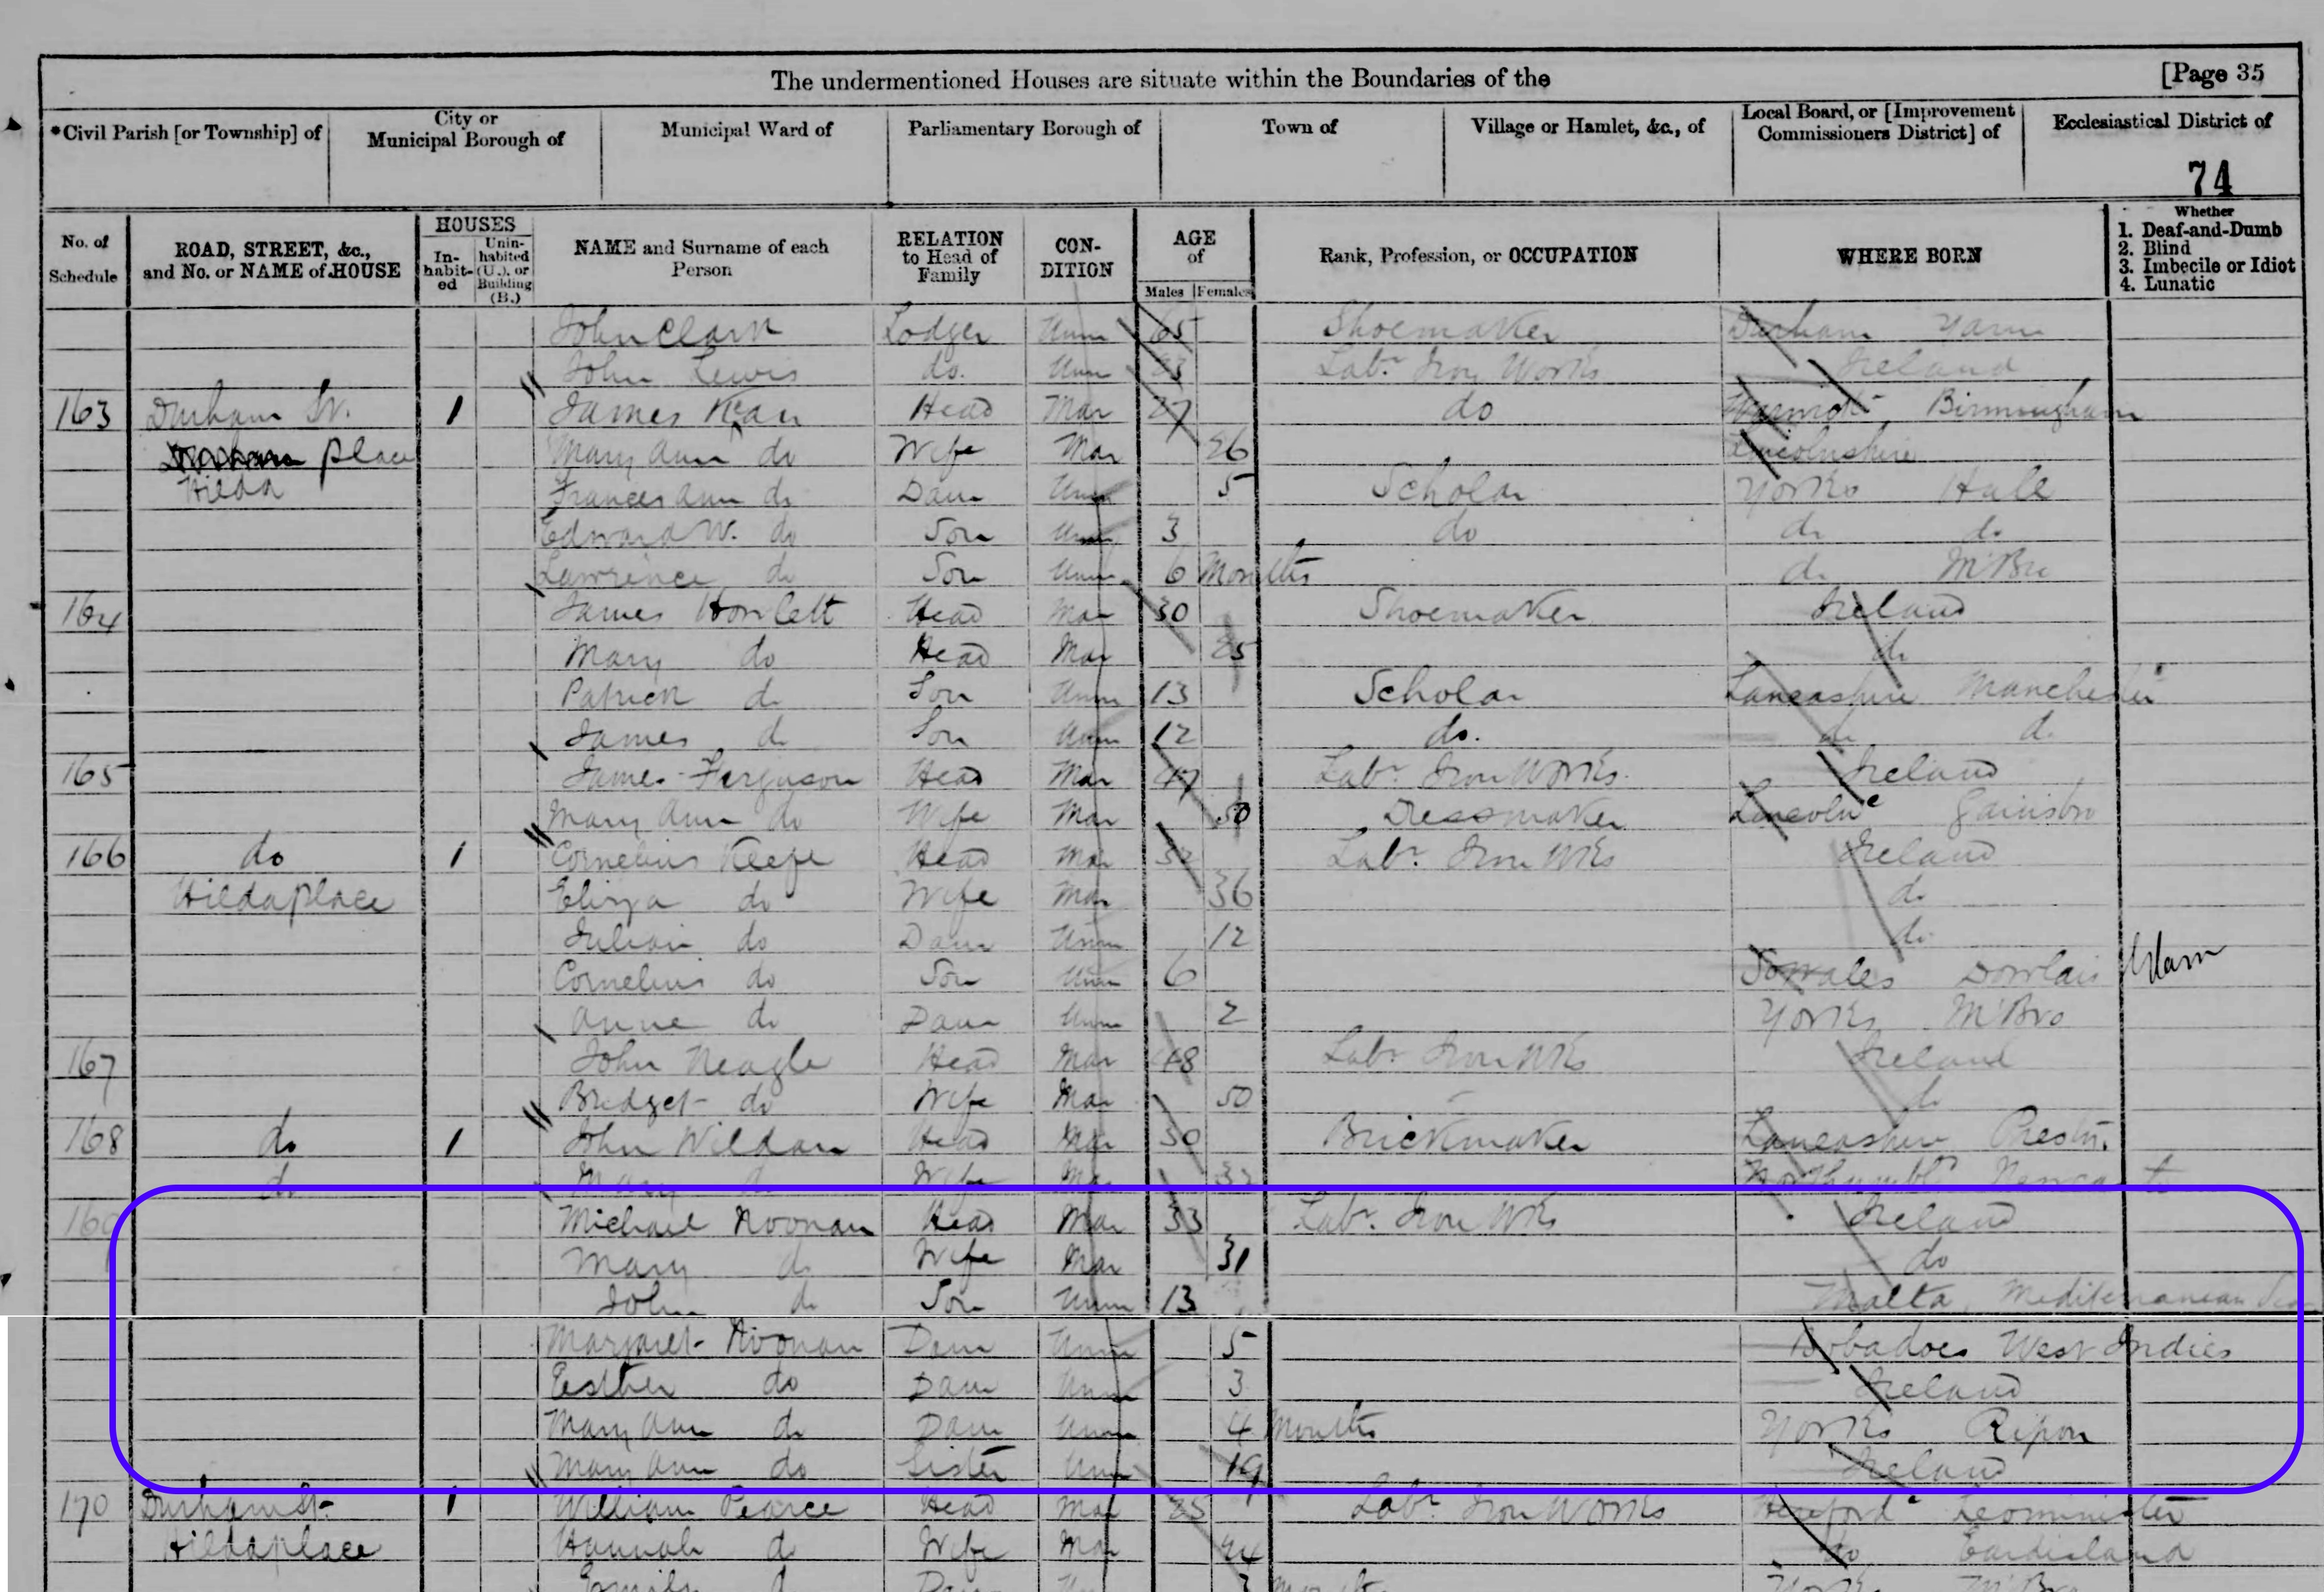 The undermentioned Houses are situate within the Boundaries of the [Page 35
*Civil Parish [or Township] of City or Municipal Borough of Municipal Ward of Parliamentary Borough of Town of Village or Hamlet, &c., of Local Board, or [Improvement Commissioners District] of Ecclesiastical District of
74
No. of Schedule ROAD, STREET, &c., and No. or NAME of HOUSE HOUSES In-habit-ed Unin-habited (U.), or Building (B.) NAME and Surname of each Person RELATION to Head of Family CON-DITION AGE of Males Females Rank, Profession, or OCCUPATION WHERE BORN Whether 1. Deaf-and-Dumb 2. Blind 3. Imbecile or Idiot 4. Lunatic
John Clark Lodger Unm 65 Shoemaker Durham Yarm
John Lewis do. Unm 23 Labr. Iron Works Ireland
163 Durham St. 1 James Kean Head Mar 27 do Birmingham
place Mary Ann do Wife Mar 26 Lincolnshire
Hilda Frances Ann do Daur Unm 5 Scholar Yorks Hull
Edward W. do Son Unm 3 do do do
Lawrence do Son Unm 6 Months do M'Bro
164 James Howlett Head Mar 30 Shoemaker Ireland
Mary do Head Mar 25 do
Patrick do Son Unm 13 Scholar Lancashire Manchester
James do Son Unm 12 do. do do
165 James Ferguson Head Mar 47 Labr Iron Works Ireland
Mary Ann do Wife Mar 50 Dressmaker Lincoln Gainsbro
166 do 1 Cornelius Keefe Head Mar Labr. Iron Wks Ireland
Hilda place Eliza do Wife Mar 36 do
do Daur Unm 12 do
Cornelius do Son Unm 6 So Wales Dowlais
Anne do Daur Unm 2 Yorks M'Bro
167 John Neagle Head Mar 48 Labr Iron Wks Ireland
Bridget do Wife Mar 50 do
168 do 1 John Wildan Head Mar 30 Brickmaker Lancashire Prestn.
do Mary do Wife Mar
169 Michael Noonan Head Mar 33 Labr. Iron Wks Ireland
Mary do Wife Mar 31 do
John do Son Unm 13 Malta, Mediterranean Sea
Margaret Noonan Daur Unm 5 Barbadoes West Indies
Esther do Daur Unm 3 Ireland
Mary Ann do Daur Unm 4 Months Yorks Ripon
Mary Ann do Sister Unm 19 Ireland
170 Durham St. 1 William Pearce Head Mar 25 Labr Iron Works Hereford Leominster
Hilda place Hannah do Wife Mar 24 do Eardisland